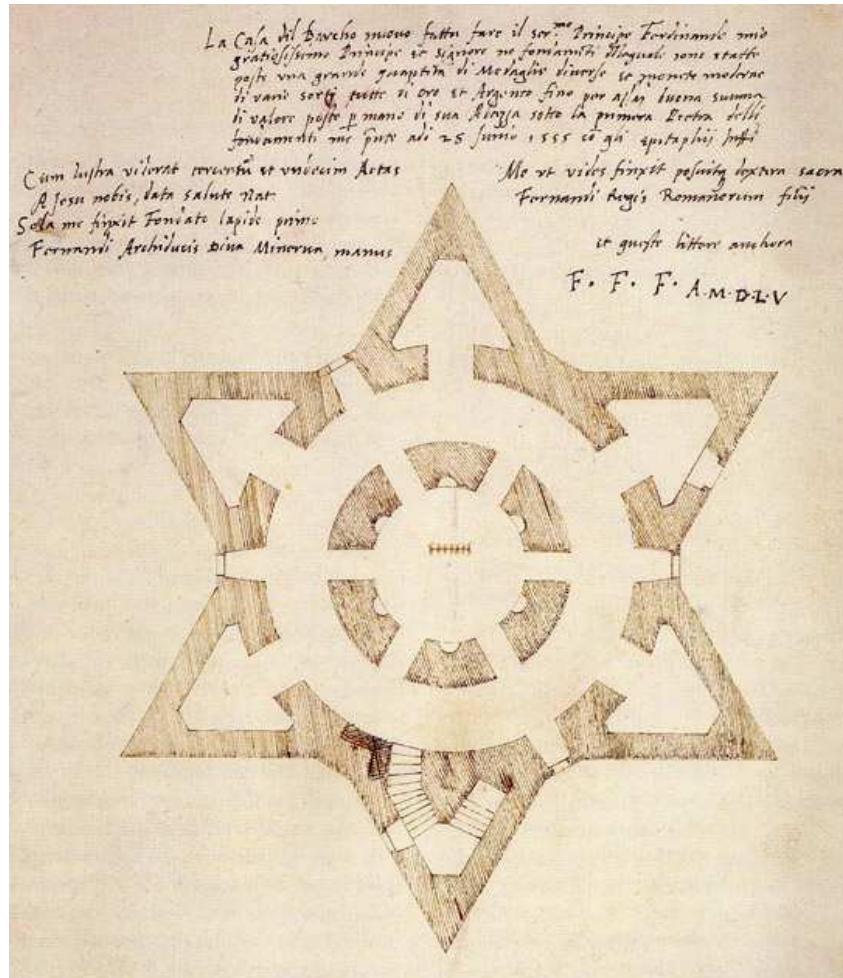 La Casa del Barcho nuovo fatta fare il ser.mo Principe Ferdinando mio
gratiosissimo Principe et signore ne fondamenti della quale sone statte
poste una grande quantita di Medaglie diverse et monete moderne
di varie sorti tutte di oro et Argento fino per assai buona summa
di valore poste p mano di sua Altezza sotto la primera Pietra delli
fondamenti me pnte adi 28 Junio 1555 cō gli epitaphii
Cum lustra viderat tercentū et undecim Aetas
A Jesu nobis, data salute Nat
Sola me finxit Fondato lapide primo
Fernandi Archiducis Diva Minerva, manus
Me ut vides finxit posuitq dextera sacra
Fernandi Regis Romanorum filii
et queste littere anchora
F. F. F. A.M.D.L.V